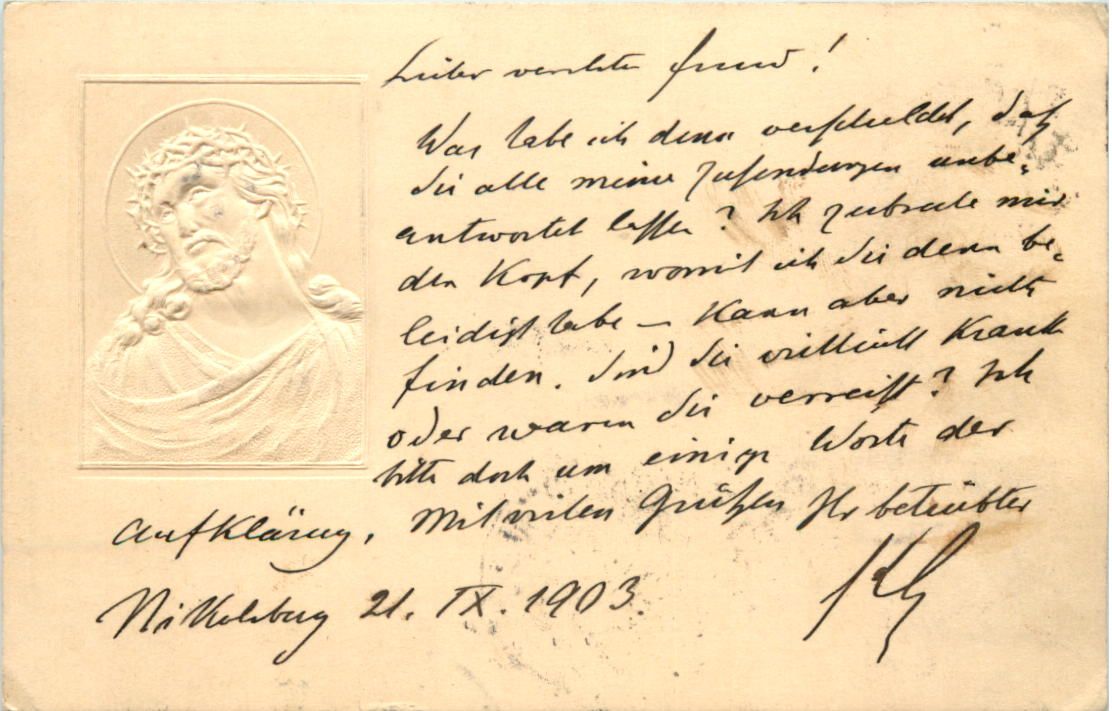 Lieber verehrter Freund!
Was habe ich denn verschuldet, daß
Sie alle meine Zusendungen unbe-
antwortet lassen? Ich zerbreche mir
den Kopf, womit ich Sie denn be-
leidigt habe – Kann aber nichts
finden. Sind Sie vielleicht Krank
oder waren Sie verreist? Ich
bitte doch um einige Worte der
Aufklärung. Mit vielen Grüßen Ihr betrübter
Nikolsburg 21. IX. 1903.